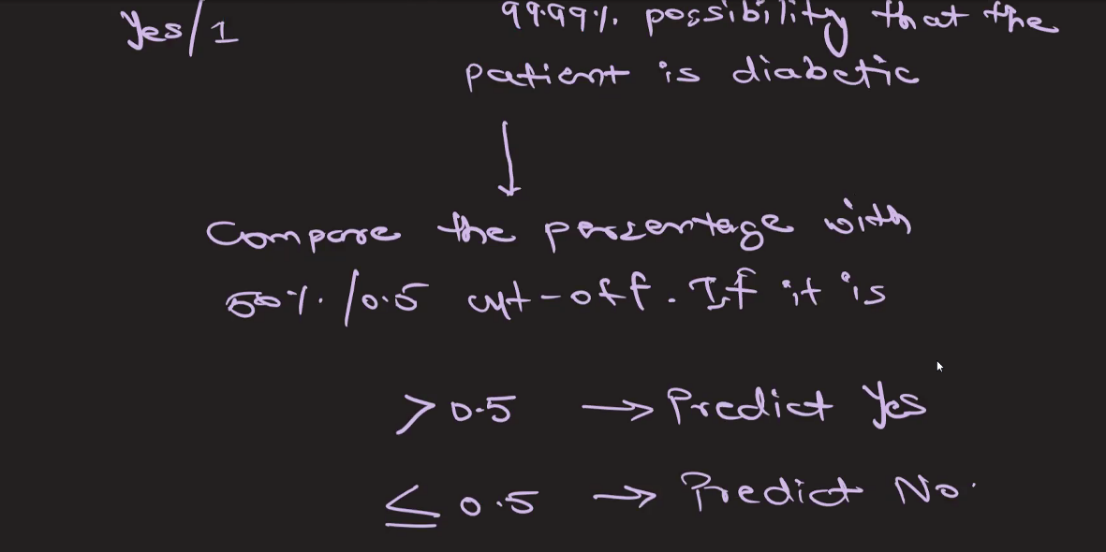 Yes/1
99.99% possibility that the
patient is diabetic
Compare the percentage with
50% /0.5 cut-off. If it is
> 0.5 → Predict Yes
≤ 0.5 → Predict No.